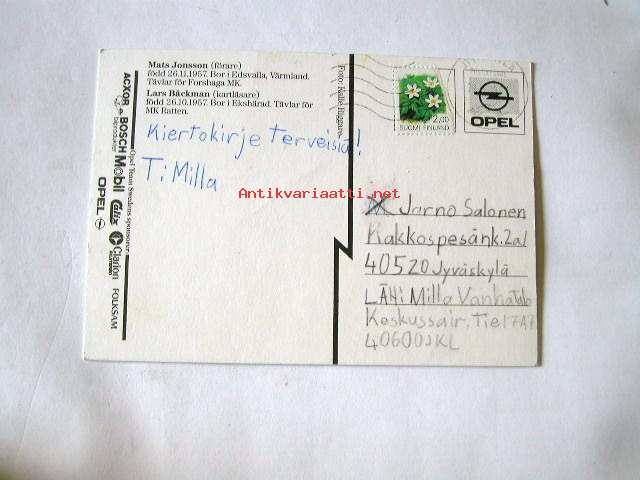 Mats Jonsson (förare)
född 26.11.1957. Bor i Edsvalla, Värmland.
Tävlar för Forshaga MK.
Lars Bäckman (kartläsare)
född 26.10.1957. Bor i Ekshärad. Tävlar för
MK Ratten.
Kiertokirje terveisiä!
T: Milla
Opel Team Swedens sponsorer
BOSCH
Mobil
Clarion
FOLKSAM
OPEL
Foto: Kalle Riggare
2,00
SUOMI FINLAND
OPEL
Antikvariaatti.net
Jarno Salonen
Kakkospesänk. 2a1
40520 Jyväskylä
LÄH: Milla Vanhatalo
Keskussair. Tie 17A7
40600 JKL